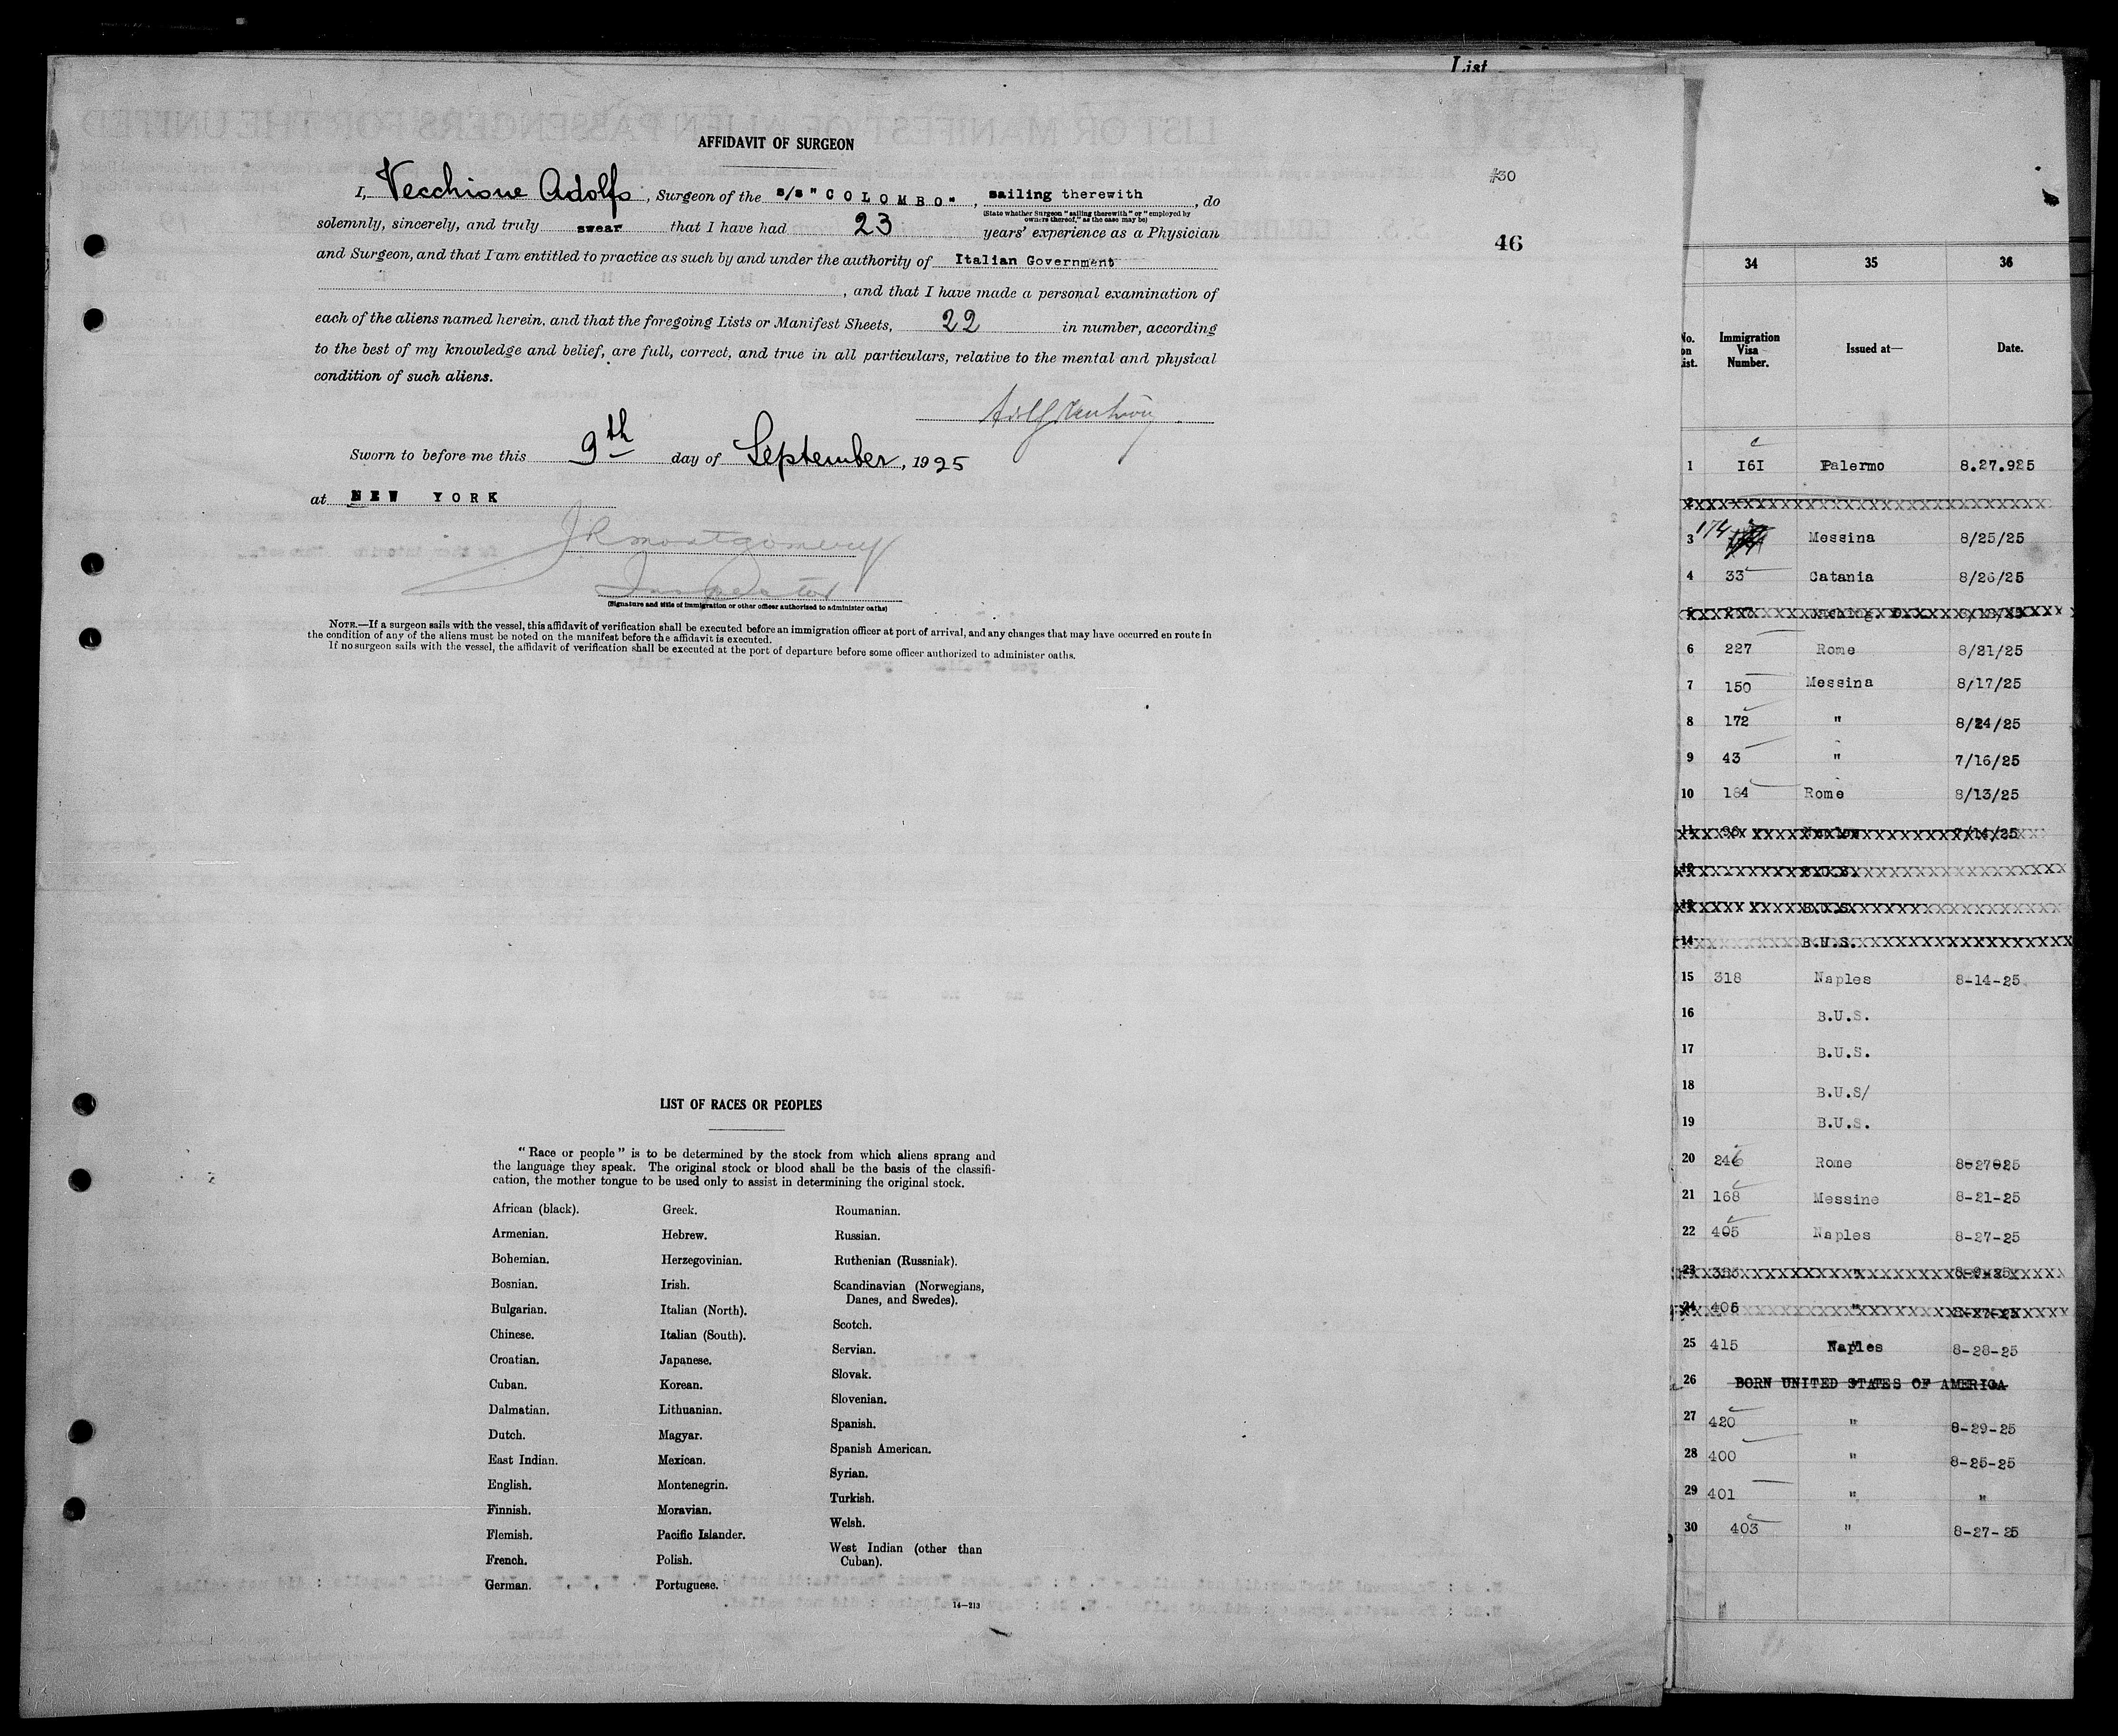 List
AFFIDAVIT OF SURGEON
#30
I, Vecchione Adolfo, Surgeon of the s/s "COLOMBO", sailing therewith, do
(State whether Surgeon "sailing therewith" or "employed by
owners thereof," as the case may be)
solemnly, sincerely, and truly swear that I have had 23 years' experience as a Physician
46
and Surgeon, and that I am entitled to practice as such by and under the authority of Italian Government
, and that I have made a personal examination of
each of the aliens named herein, and that the foregoing Lists or Manifest Sheets, 22 in number, according
to the best of my knowledge and belief, are full, correct, and true in all particulars, relative to the mental and physical
condition of such aliens.
Sworn to before me this 9th day of September, 1925
at NEW YORK
JRMontgomery
Inspector
(Signature and title of immigration or other officer authorized to administer oaths)
NOTE.—If a surgeon sails with the vessel, this affidavit of verification shall be executed before an immigration officer at port of arrival, and any changes that may have occurred en route in
the condition of any of the aliens must be noted on the manifest before the affidavit is executed.
If no surgeon sails with the vessel, the affidavit of verification shall be executed at the port of departure before some officer authorized to administer oaths.
LIST OF RACES OR PEOPLES
"Race or people" is to be determined by the stock from which aliens sprang and
the language they speak. The original stock or blood shall be the basis of the classifi-
cation, the mother tongue to be used only to assist in determining the original stock.
African (black).
Armenian.
Bohemian.
Bosnian.
Bulgarian.
Chinese.
Croatian.
Cuban.
Dalmatian.
Dutch.
East Indian.
English.
Finnish.
Flemish.
French.
German.
Greek.
Hebrew.
Herzegovinian.
Irish.
Italian (North).
Italian (South).
Japanese.
Korean.
Lithuanian.
Magyar.
Mexican.
Montenegrin.
Moravian.
Pacific Islander.
Polish.
Portuguese.
Roumanian.
Russian.
Ruthenian (Russniak).
Scandinavian (Norwegians,
Danes, and Swedes).
Scotch.
Servian.
Slovak.
Slovenian.
Spanish.
Spanish American.
Syrian.
Turkish.
Welsh.
West Indian (other than
Cuban).
14—213
34 35 36
No.
on
List.
Immigration
Visa
Number.
Issued at—
Date.
1 161 Palermo 8.27.925
2
3 174 Messina 8/25/25
4 33 Catania 8/26/25
5
6 227 Rome 8/21/25
7 150 Messina 8/17/25
8 172 " 8/24/25
9 43 " 7/16/25
10 184 Rome 8/13/25
11 7/14/25
12 B.U.S.
13 B.U.S.
14 B.U.S.
15 318 Naples 8-14-25
16 B.U.S.
17 B.U.S.
18 B.U.S/
19 B.U.S.
20 246 Rome 8-27-25
21 168 Messine 8-21-25
22 405 Naples 8-27-25
23 "
24 406 "
25 415 Naples 8-28-25
26 BORN UNITED STATES OF AMERICA
27 420 " 8-29-25
28 400 " 8-25-25
29 401 " "
30 403 " 8-27-25